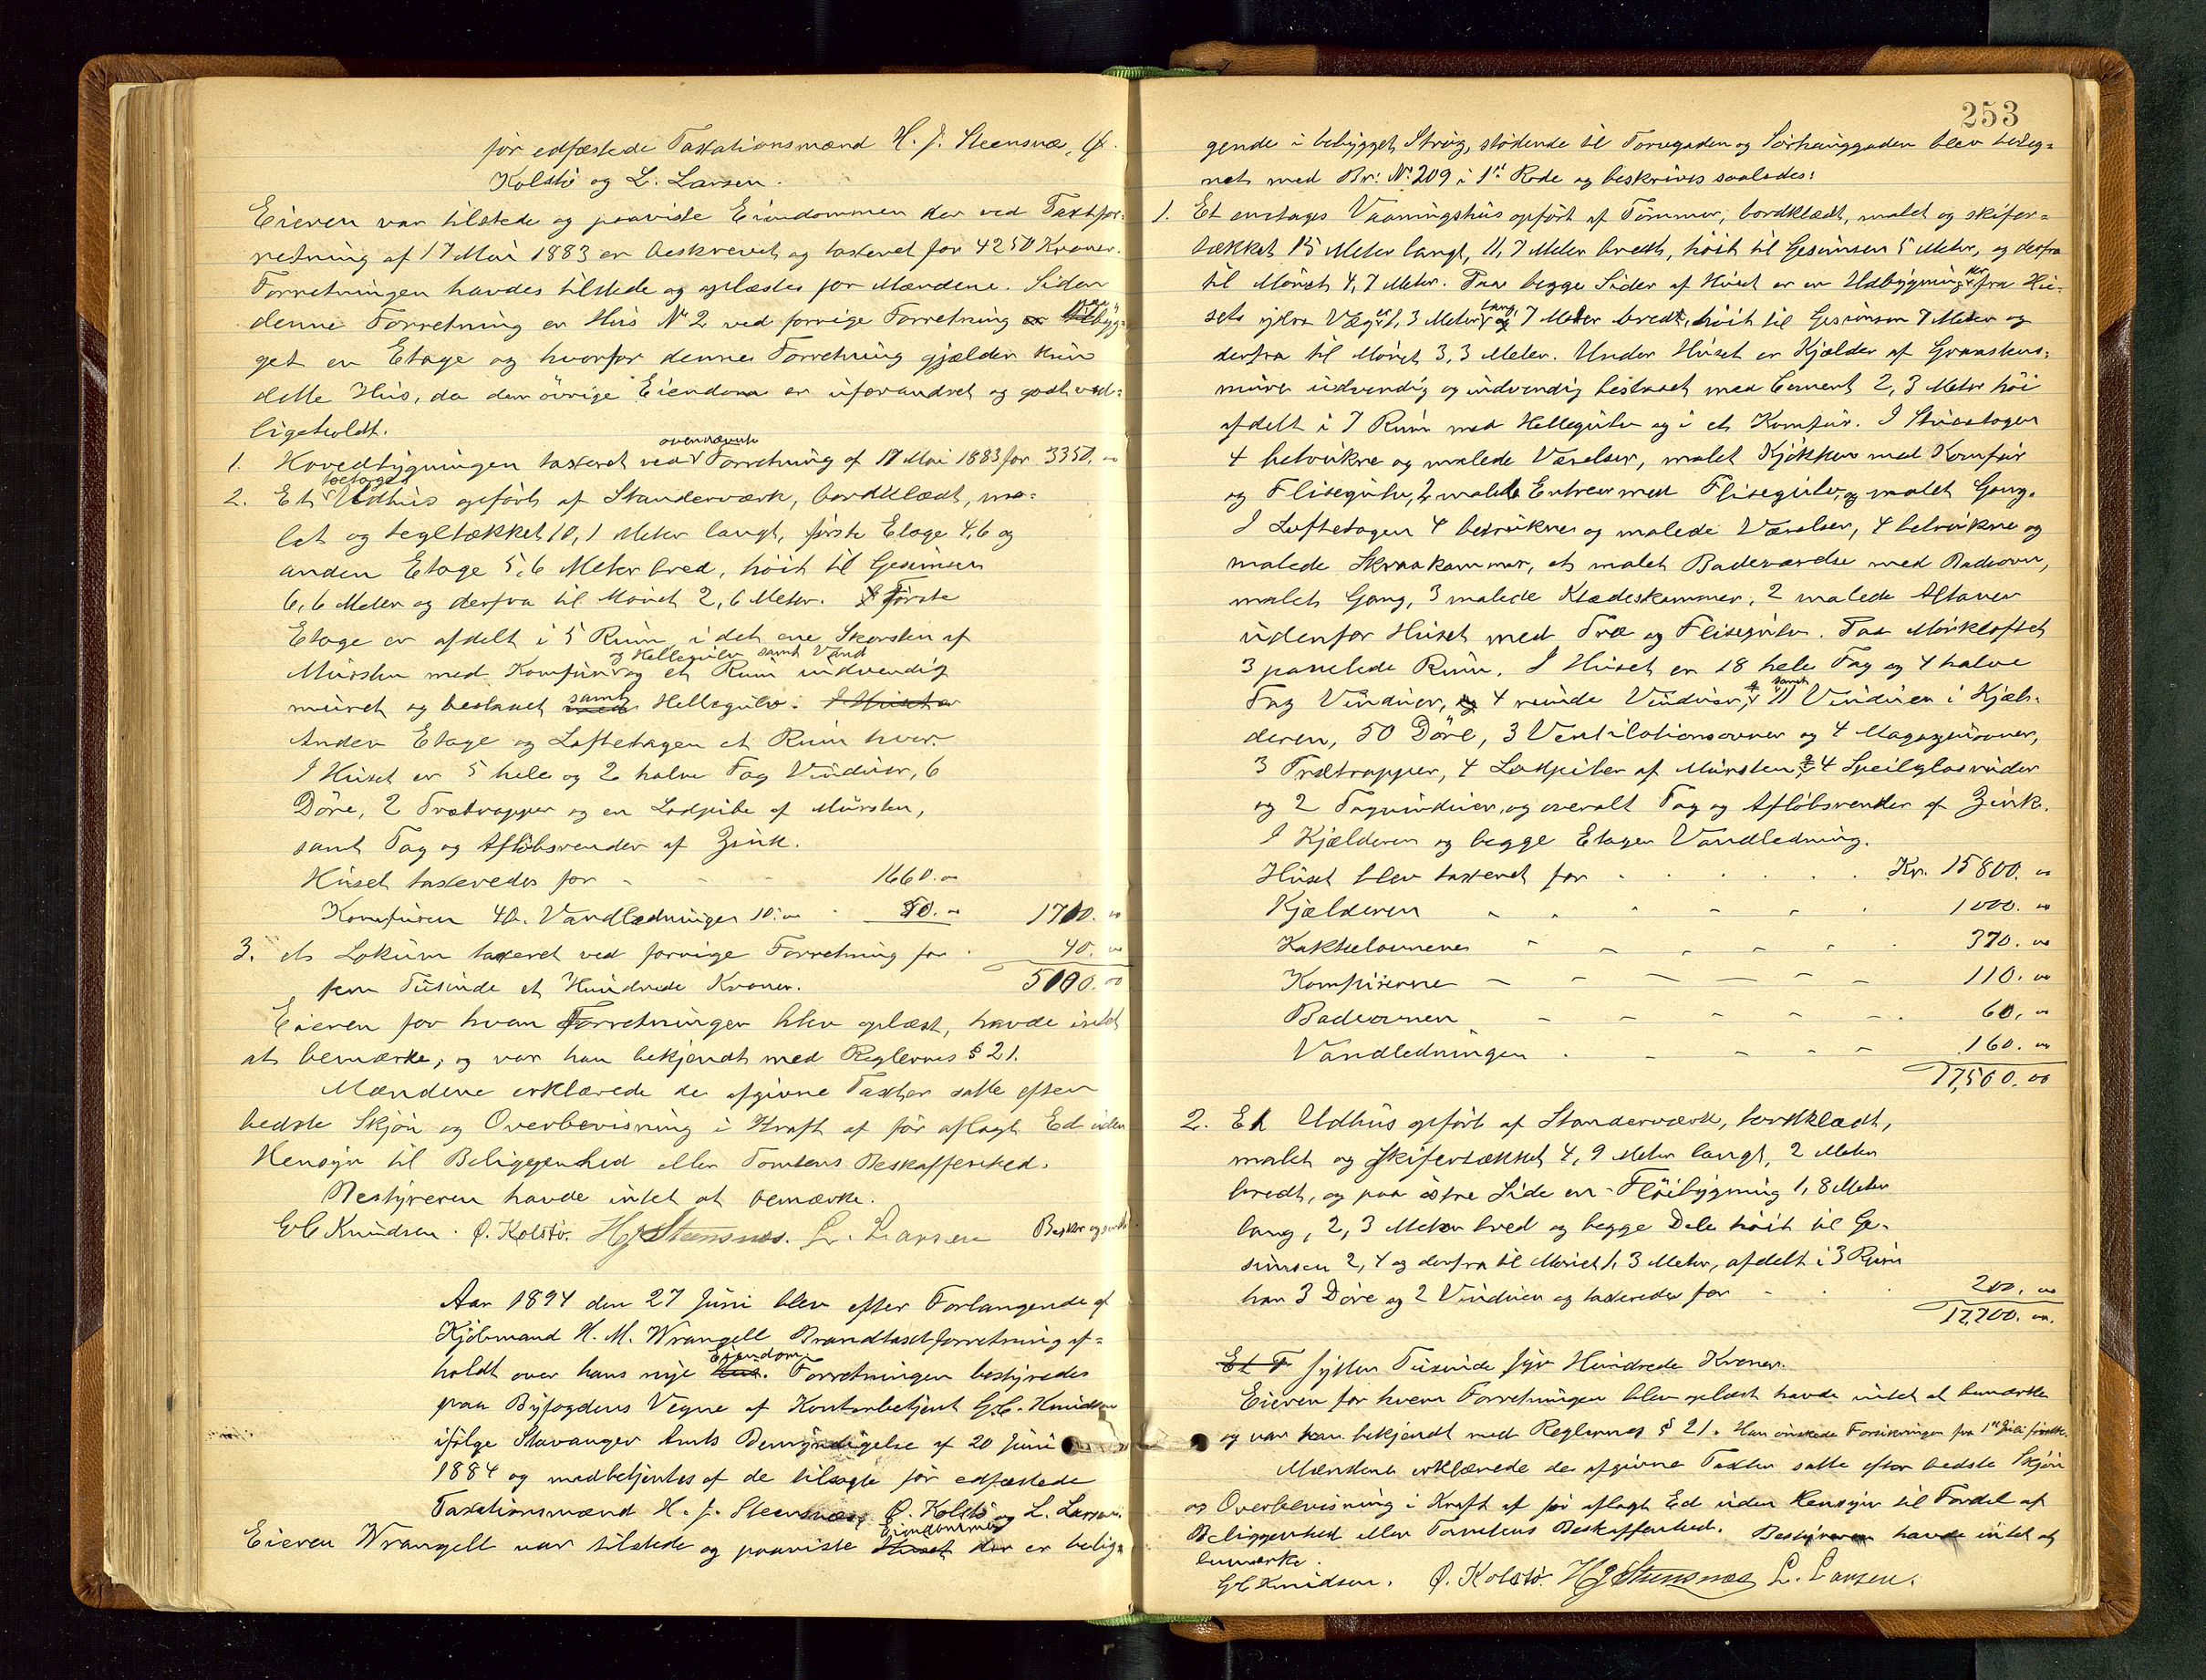 før edfæstede Taxationsmænd H. J. Steensnæs, Ø.
Kolstø og L. Larsen.
Eieren var tilstede og paaviste Eiendommen der ved Taxtfor-
retning af 17 Mai 1883 er beskrevet og taxeret for 4250 Kroner.
Forretningen havdes tilstede og oplæstes for Mændene. Siden
denne Forretning er Hus No 2 ved forrige Forretning paabyg-
get en Etage og hvorfor denne Forretning gjælder kun
dette Hus, da den øvrige Eiendom er uforandret og godt ved-
ligeholdt.
1. Hovedbygningen taxeret ved ovennævnte Forretning af 17 Mai 1883 for 3350.00
2. Et toetages Udhus opført af Standerværk, bordklædt, ma-
let og tegltækket 10,1 Meter langt, første Etage 4,6 og
anden Etage 5,6 Meter bred, høit til Gesimsen
6,6 Meter og derfra til Mønet 2,6 Meter. Første
Etage er afdelt i 5 Rum, i det ene Skorsten af
Mursten med Komfur og Hellegulv samt Vand og et Rum indvendig
muret og beslaaet samt Hellegulv. I Huset er
Anden Etage og Loftetagen et Rum hver.
I Huset er 5 hele og 2 halve Fag Vinduer, 6
Døre, 2 Trætrapper og en Ladpibe af Mursten,
samt Tag og Afløbsrender af Zink.
Huset taxeredes for - - - 1660.00
Komfuren 40. Vandledninger 10.00 50.00 1710.00
3. et Lokum taxeret ved forrige Forretning for 40.00
fem Tusinde et Hundrede Kroner. 5100.00
Eieren for hvem Forretningen blev oplæst, havde intet
at bemærke, og var han bekjendt med Reglernes § 21.
Mændene erklærede de afgivne Taxter satte efter
bedste Skjøn og Overbevisning i Kraft af før aflagt Ed uden
Hensyn til Beliggenhed eller Tomtens Beskaffenhed.
Bestyreren havde intet at bemærke.
G C Knudsen. Ø. Kolstø. H J Steensnæs. L. Larsen
Aar 1894 den 27 Juni blev efter Forlangende af
Kjøbmand H. M. Wrangell Brandtaxtforretning af-
holdt over hans nye Eiendom. Forretningen bestyredes
paa Byfogdens Vegne af Kontorbetjent G. C. Knudsen
ifølge Stavanger Amts Bemyndigelse af 20 Juni
1884 og medbetjentes af de tilsagte før edfæstede
Taxationsmænd H. J. Steensnæs, Ø. Kolstø og L. Larsen.
Eieren Wrangell var tilstede og paaviste Eiendommen der er belig-
253
gende i bebygget Strøg, stødende til Torvgaden og Sørhauggaden blev beteg-
net med Br: No 209 i 1st Rode og beskrives saaledes:
1. Et enetages Vaaningshus opført af Tømmer, bordklædt, malet og skifer-
tækket 15 Meter langt, 11,7 Meter bredt, høit til Gesimsen 5 Meter, og derfra
til Mønet 4,7 Meter. Paa begge Sider af Huset er en Udbygning der fra Hu-
sets ydre Væg er 1,3 Meter lang, og 7 Meter bredt, høit til Gesimsen 7 Meter og
derfra til Mønet 3,3 Meter. Under Huset er Kjælder af Graastens-
mure udvendig og indvendig bestaaet med Cement 2,3 Meter høi
afdelt i 7 Rum med Hellegulv og i et Komfur. I Stueetagen
4 betrukne og malede Værelser, malet Kjøkken med Komfur
og Flisegulv, 2 malede Entreer med Flisegulv, og malet Gang.
I Loftetagen 4 betrukne og malede Værelser, 4 betrukne og
malede Skraakammer, et malet Badeværelse med Badeovn,
malet Gang, 3 malede Klædeskammer, 2 malede Altaner
udenfor Huset med Træ og Flisegulv. Paa Mørkloftet
3 panelede Rum. I Huset er 18 hele Fag og 4 halve
Fag Vinduer, 4 runde Vinduer, samt 11 Vinduer i Kjæl-
deren, 50 Døre, 3 Ventilationsovner og 4 Magazinovner,
3 Trætrapper, 4 Ladpiber af Mursten, 4 Speilglasruder
og 2 Tagvinduer, og overalt Tag og Afløbsrender af Zink.
I Kjælderen og begge Etager Vandledning.
Huset blev taxeret for - - - Kr. 15800.00
Kjælderen - - - 1000.00
Kakkelovnene - - - 370.00
Komfurerne - - - 110.00
Badeovnen - - - 60.00
Vandledningen - - - 160.00
17,500.00
2. Et Udhus opført af Standerværk, bordklædt,
malet og skifertækket 4,9 Meter langt, 2 Meter
bredt, og paa østre Side en Fløibygning 1,8 Meter
lang, 2,3 Meter bred og begge Dele høit til Ge-
simsen 2,4 og derfra til Mønet 1,3 Meter, afdelt i 3 Rum
har 3 Døre og 2 Vinduer og taxeredes for - 200.00
17,700.00
Et F sytten Tusinde syv Hundrede Kroner.
Eieren for hvem Forretningen blev oplæst havde intet at bemærke
og var han bekjendt med Reglernes § 21. Han ønskede Forsikringen fra 1st Juli
Mændene erklærede de afgivne Taxter satte efter bedste Skjøn
og Overbevisning i Kraft af før aflagt Ed uden Hensyn til Fordel af
Beliggenhed eller Tomtens Beskaffenhed. Bestyreren havde intet at
bemærke.
G C Knudsen. Ø. Kolstø. H J Steensnæs L. Larsen.